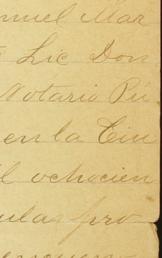 nuel Mar
Lic Don
Notario Pú
en la Ciu
il ochocien
ulas pro